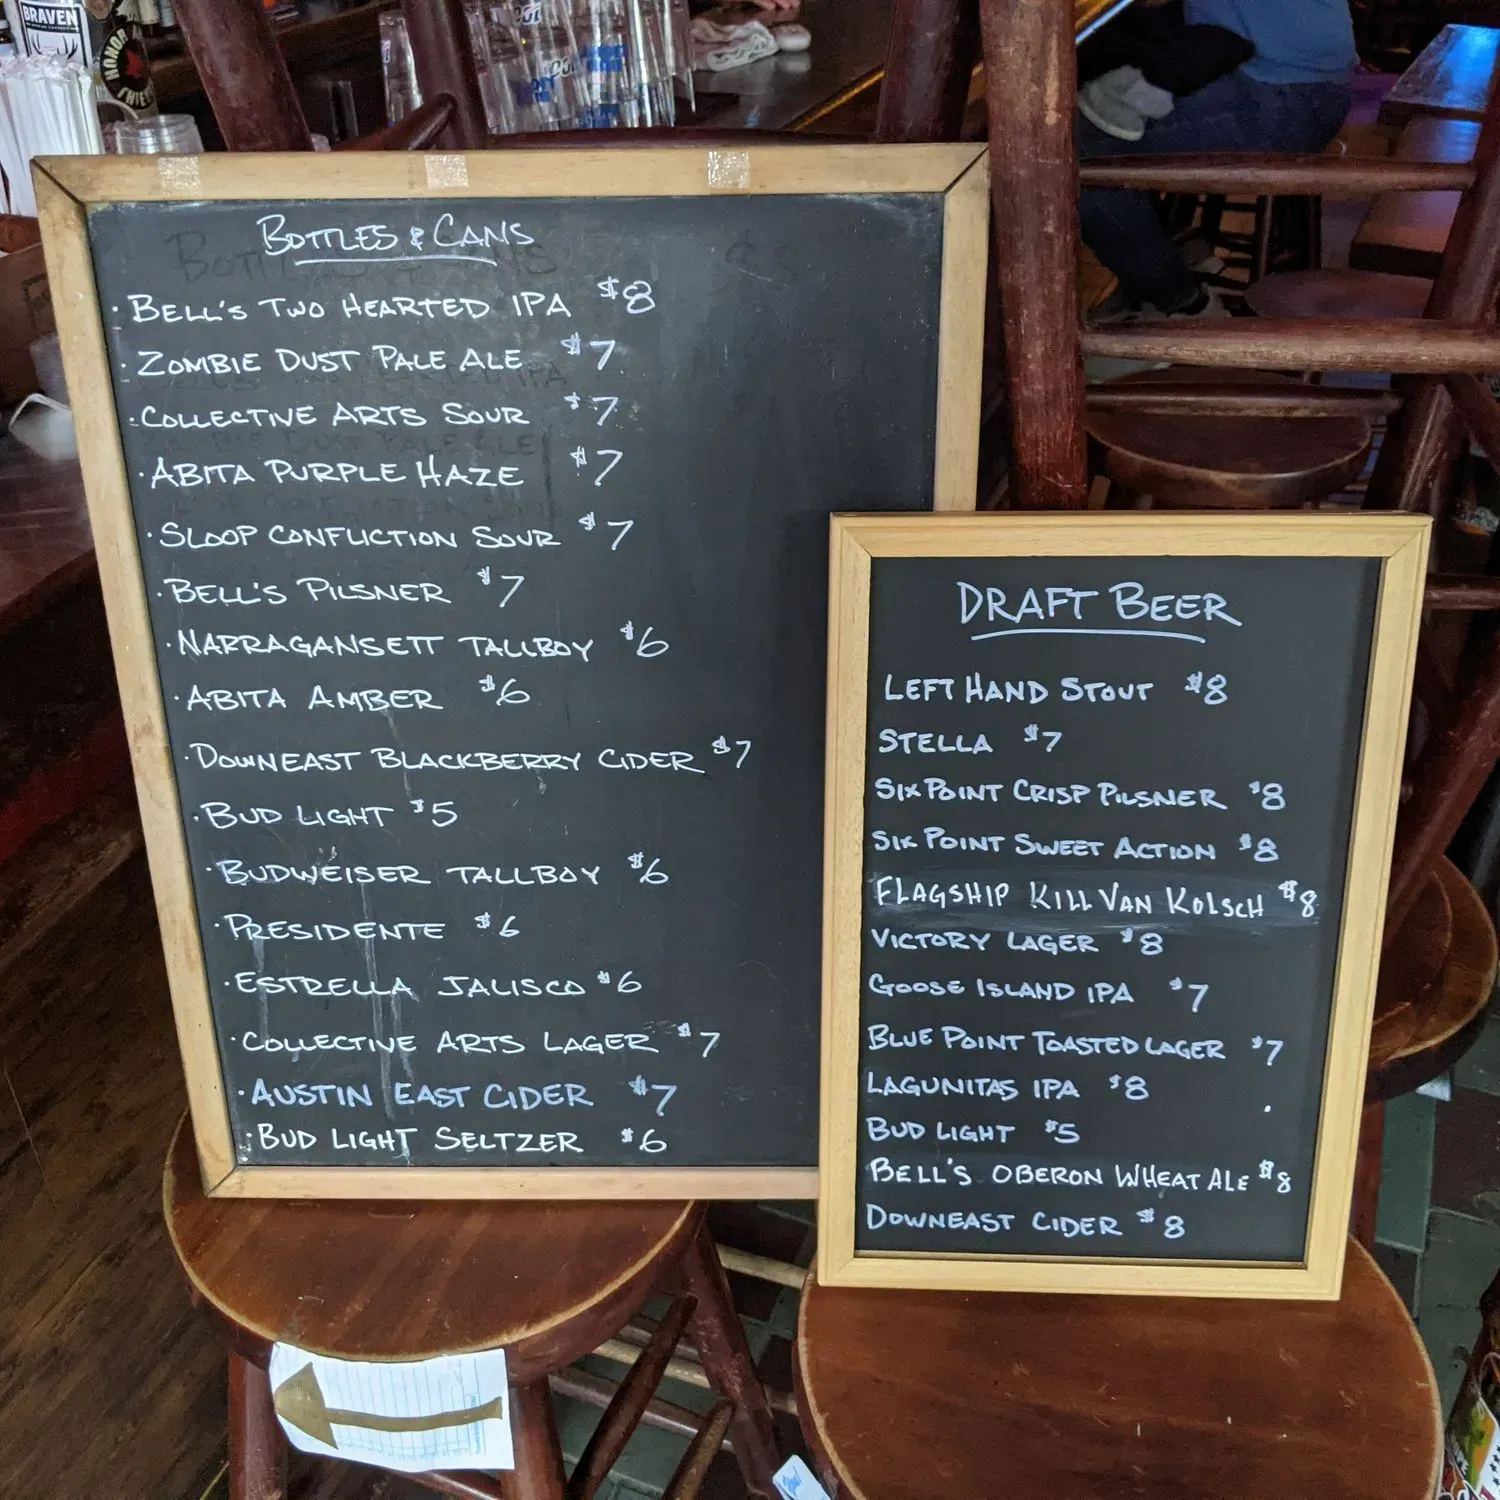 BRAVEN
HONOR
THIEVES
BOTTLES & CANS
· BELL'S TWO HEARTED IPA $8
· ZOMBIE DUST PALE ALE $7
· COLLECTIVE ARTS SOUR $7
· ABITA PURPLE HAZE $7
· SLOOP CONFLICTION SOUR $7
· BELL'S PILSNER $7
· NARRAGANSETT TALLBOY $6
· ABITA AMBER $6
· DOWNEAST BLACKBERRY CIDER $7
· BUD LIGHT $5
· BUDWEISER TALLBOY $6
· PRESIDENTE $6
· ESTRELLA JALISCO $6
· COLLECTIVE ARTS LAGER $7
· AUSTIN EAST CIDER $7
· BUD LIGHT SELTZER $6
DRAFT BEER
LEFT HAND STOUT $8
STELLA $7
SIXPOINT CRISP PILSNER $8
SIX POINT SWEET ACTION $8
FLAGSHIP KILL VAN KOLSCH $8
VICTORY LAGER $8
GOOSE ISLAND IPA $7
BLUE POINT TOASTED LAGER $7
LAGUNITAS IPA $8
BUD LIGHT $5
BELL'S OBERON WHEAT ALE $8
DOWNEAST CIDER $8